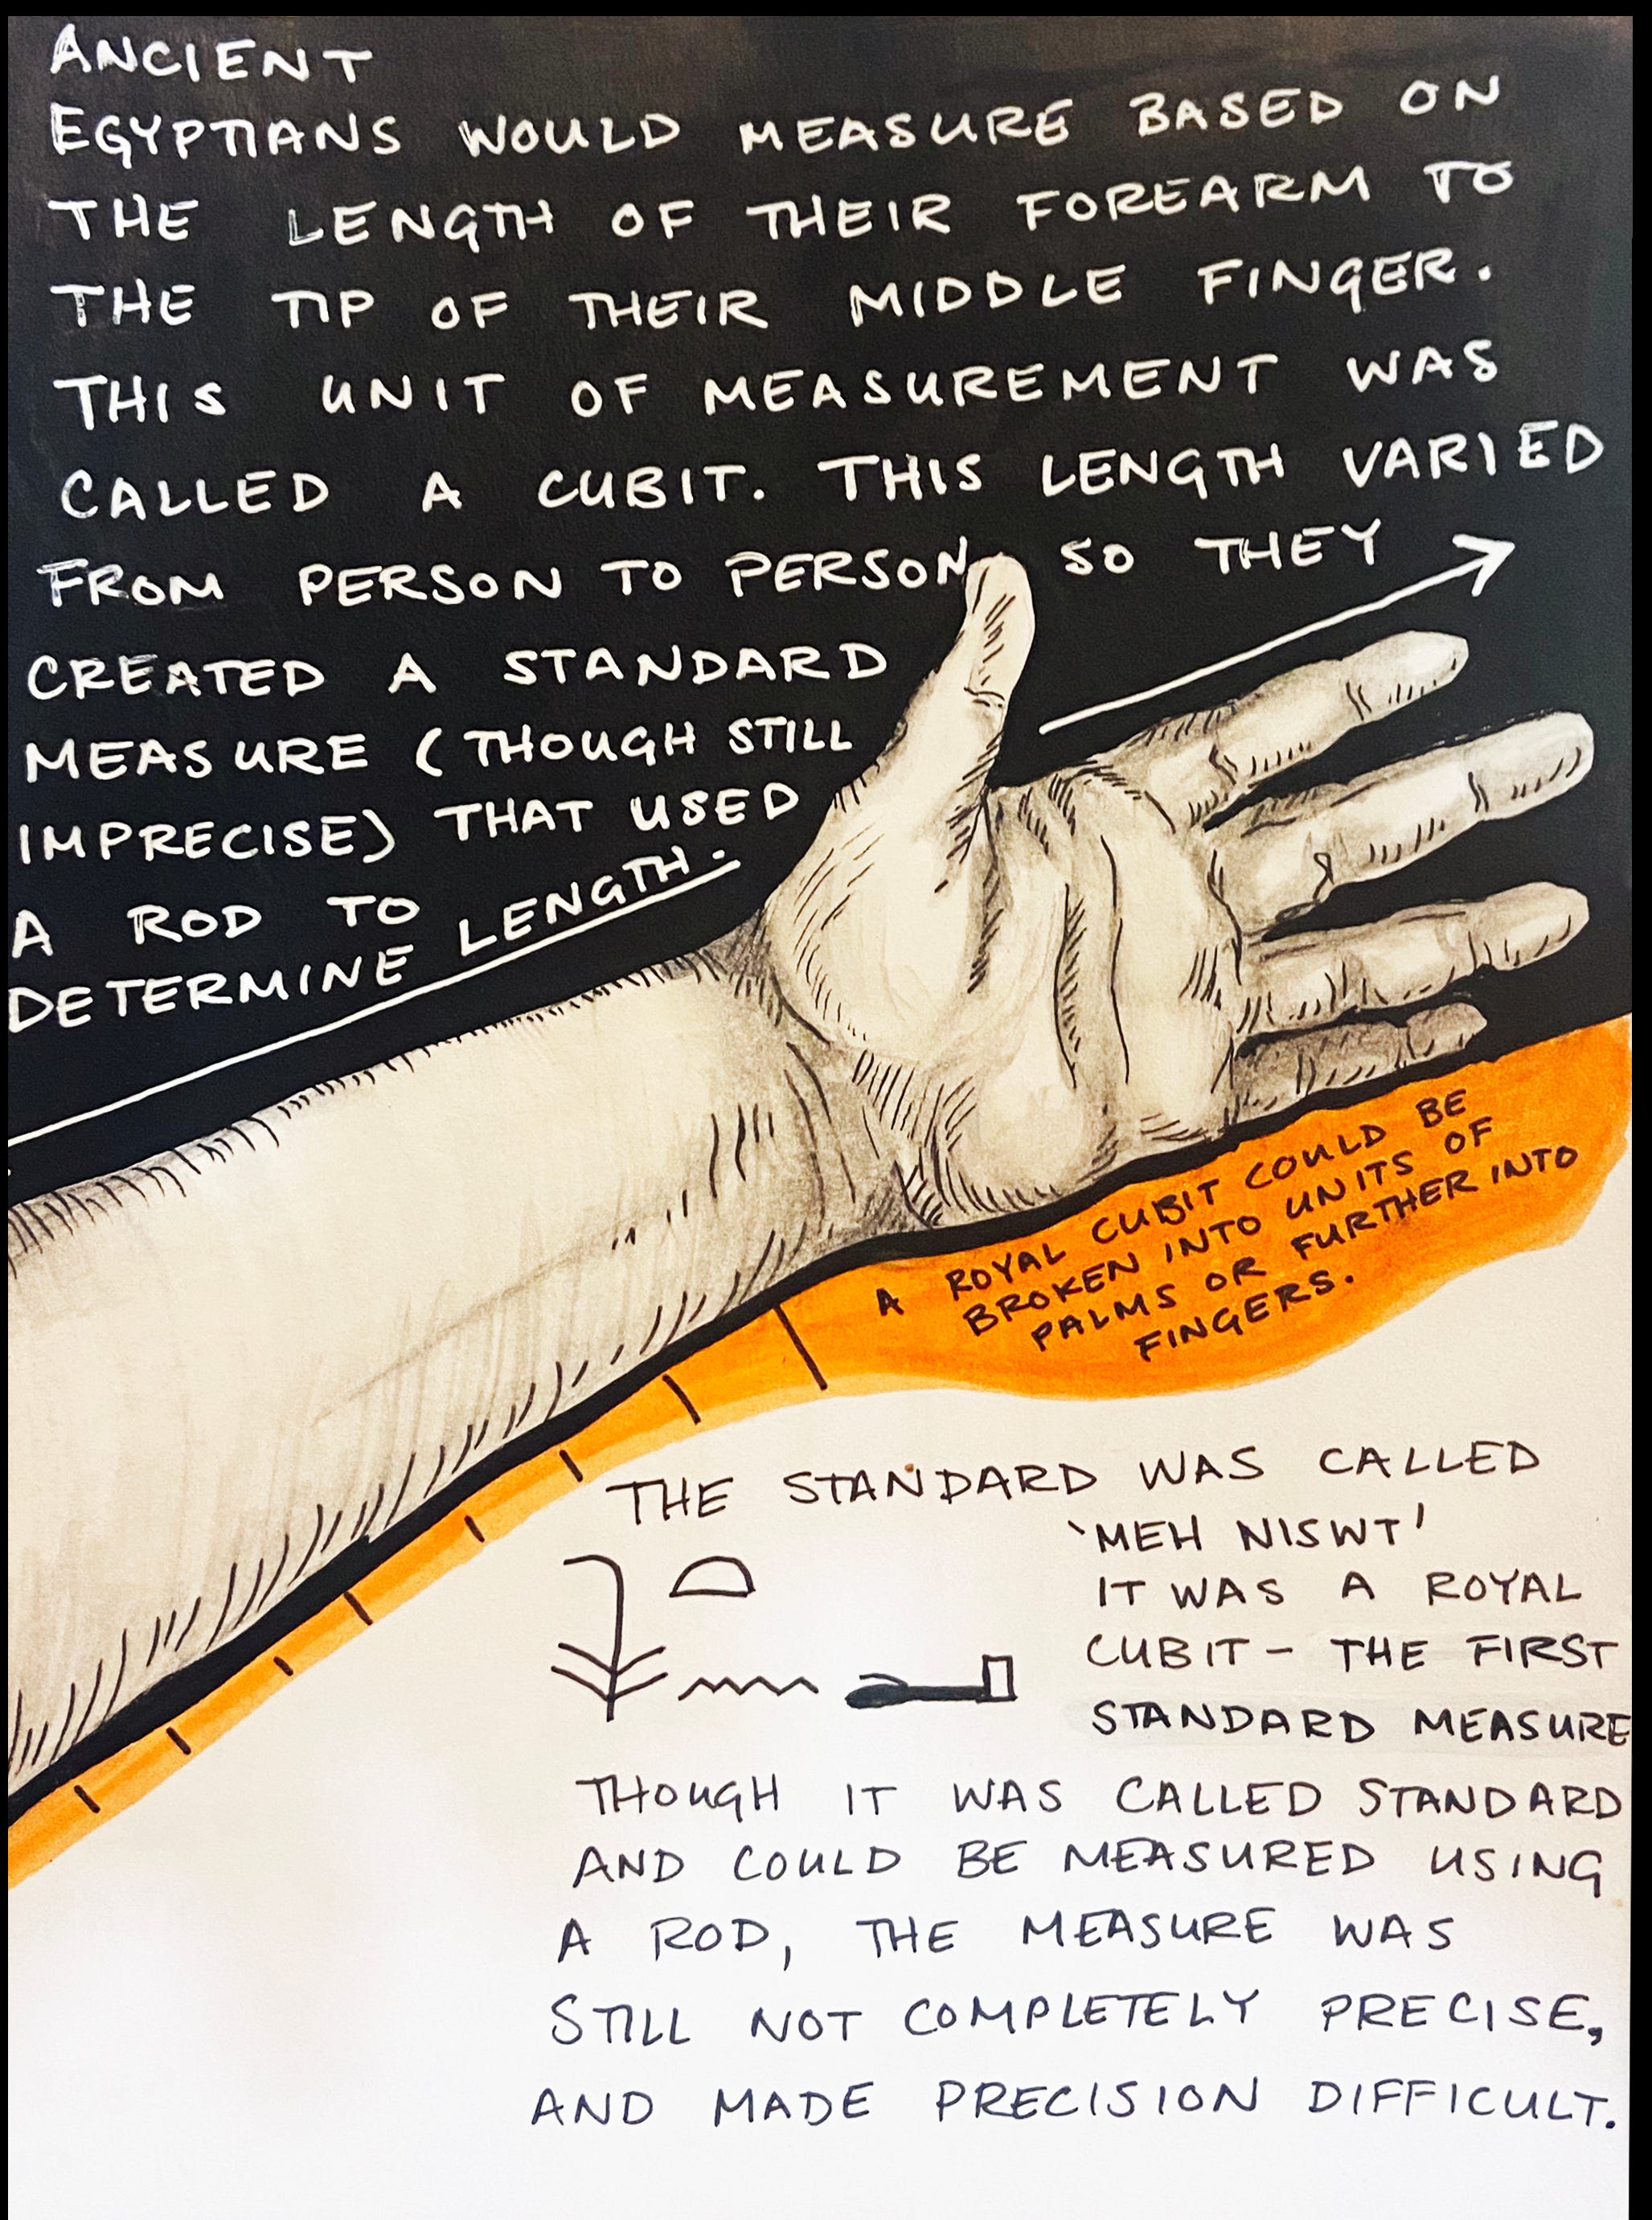 ANCIENT
EGYPTIANS WOULD MEASURE BASED ON
THE LENGTH OF THEIR FOREARM TO
THE TIP OF THEIR MIDDLE FINGER.
THIS UNIT OF MEASUREMENT WAS
CALLED A CUBIT. THIS LENGTH VARIED
FROM PERSON TO PERSON, SO THEY
CREATED A STANDARD
MEASURE (THOUGH STILL
IMPRECISE) THAT USED
A ROD TO
DETERMINE LENGTH.
A ROYAL CUBIT COULD BE
BROKEN INTO UNITS OF
PALMS OR FURTHER INTO
FINGERS.
THE STANDARD WAS CALLED
'MEH NISWT'
IT WAS A ROYAL
CUBIT - THE FIRST
STANDARD MEASURE
THOUGH IT WAS CALLED STANDARD
AND COULD BE MEASURED USING
A ROD, THE MEASURE WAS
STILL NOT COMPLETELY PRECISE,
AND MADE PRECISION DIFFICULT.